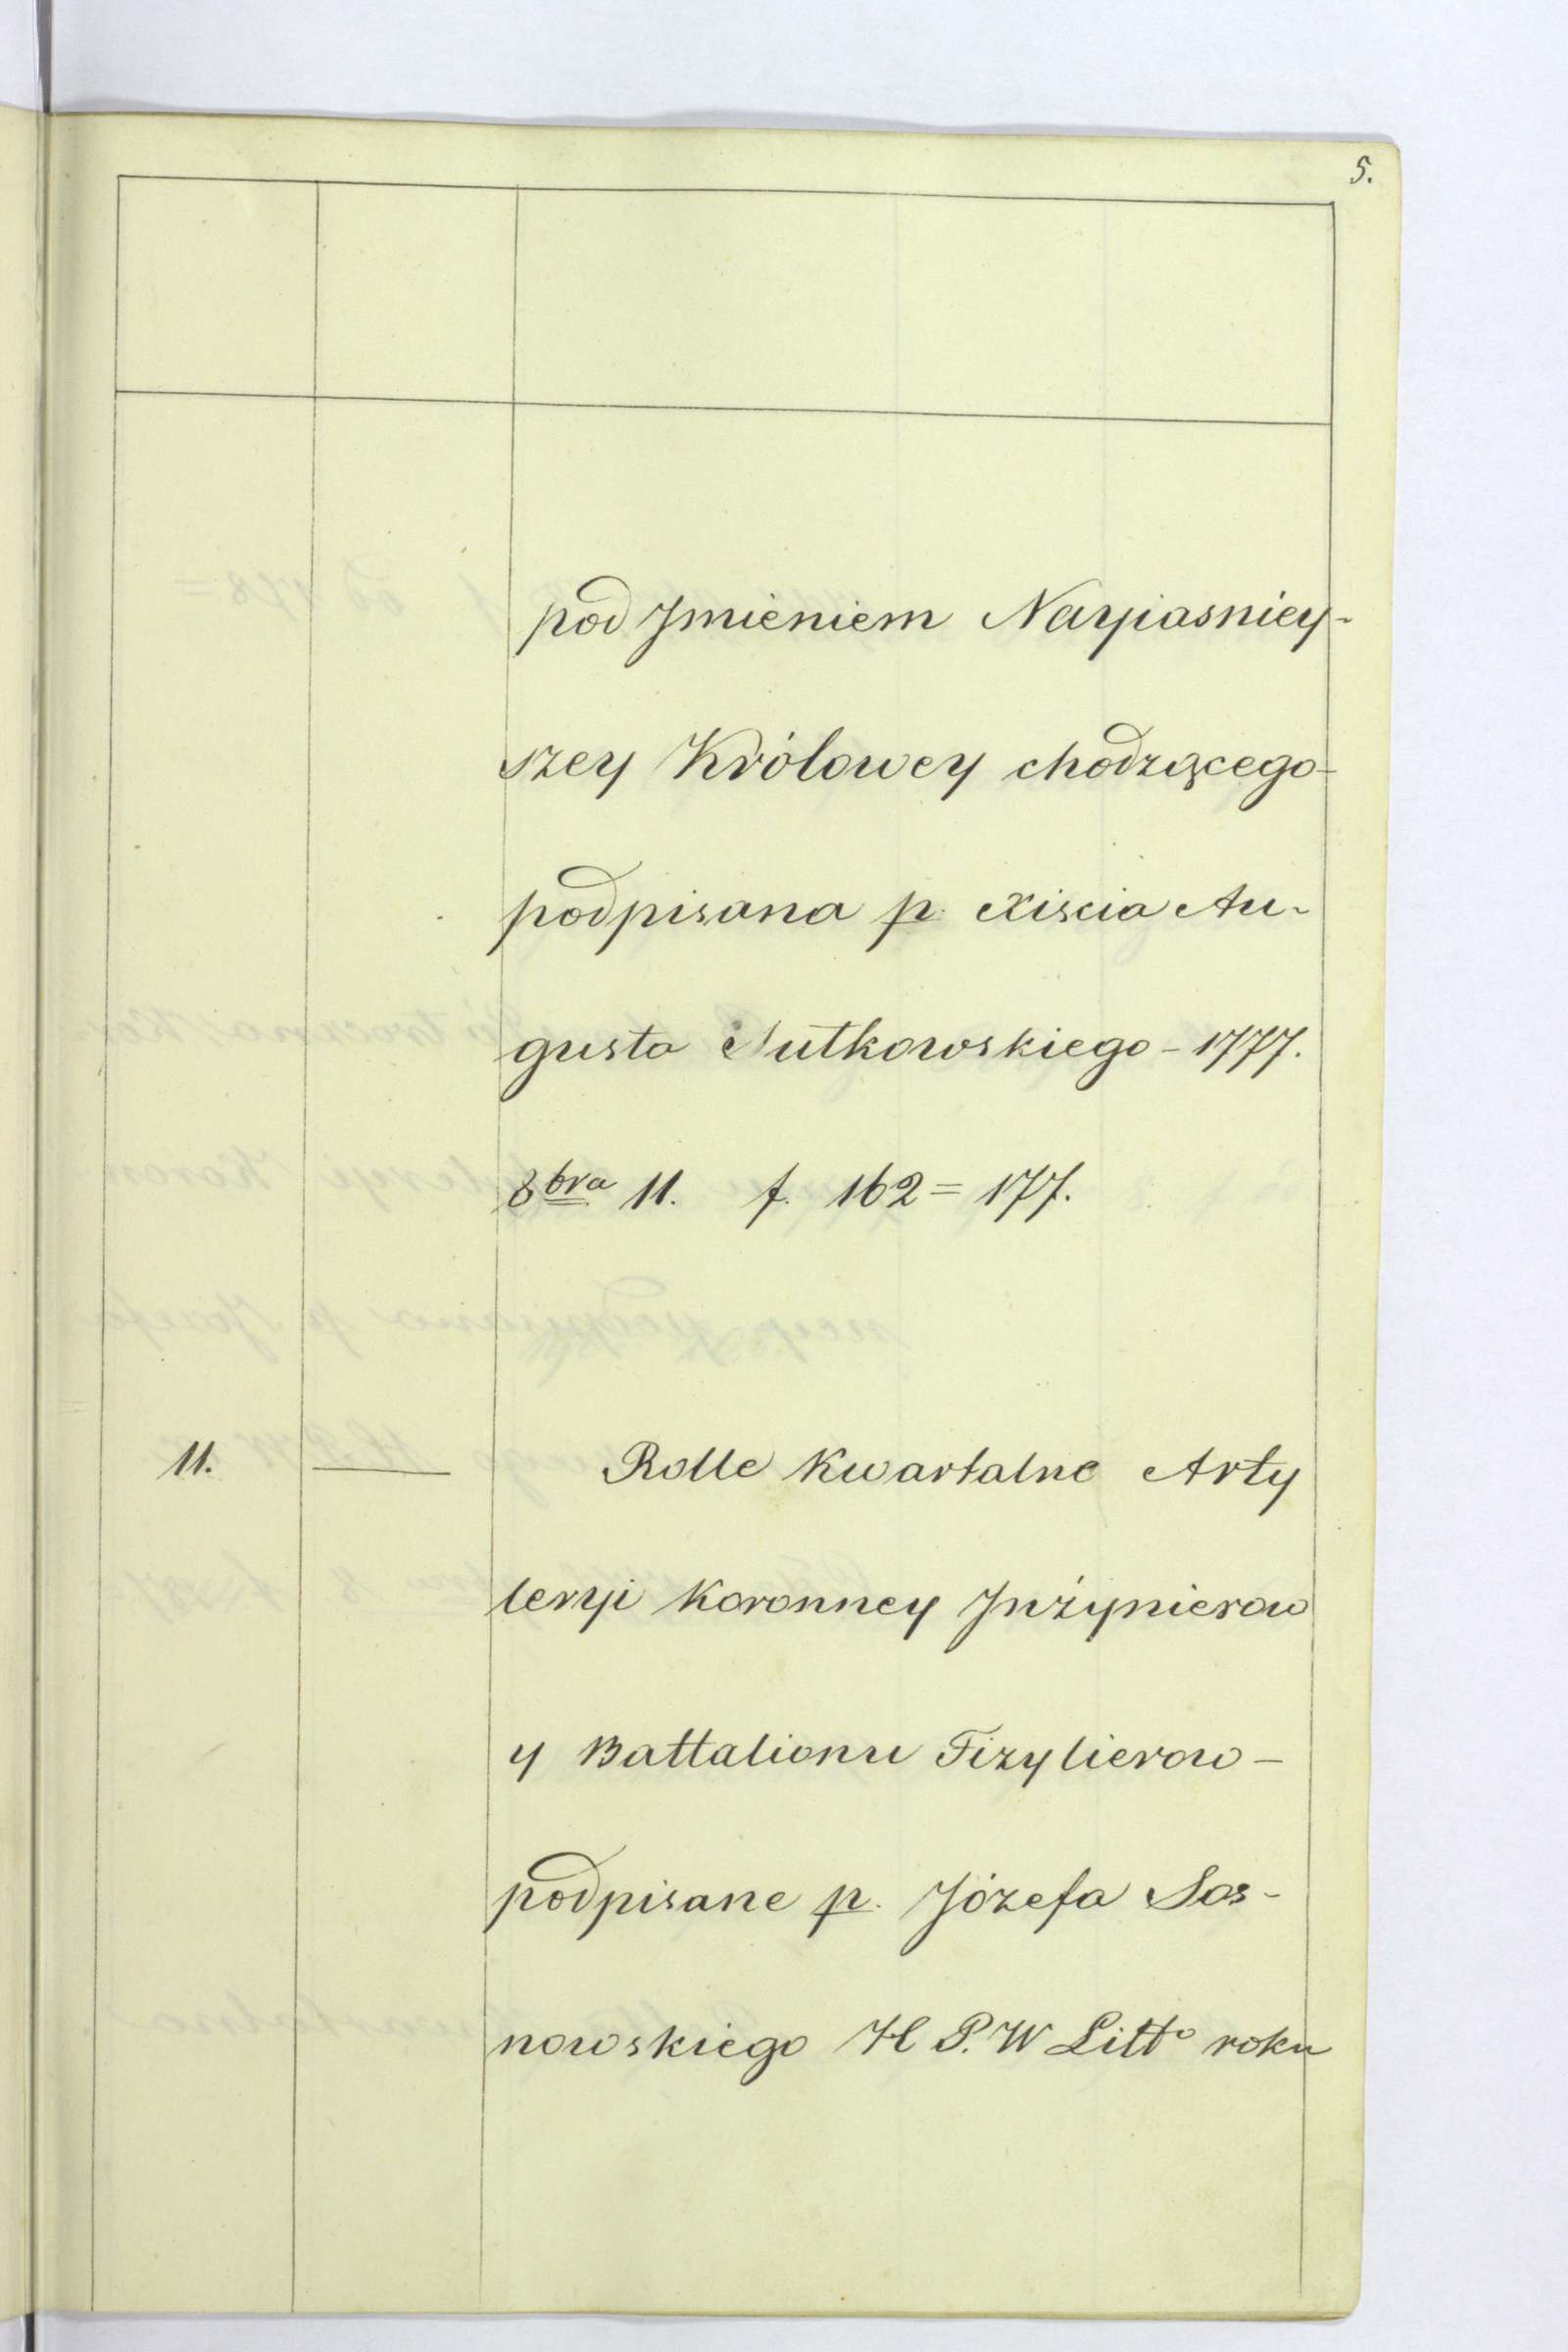 5.
pod Jmieniem Nayiasniey-
szey Królowey chodzącego-
podpisana p. Xiscia Au-
gusta Sutkowskiego - 1777.
8bra 11. f. 162 = 177.
11. — Rolle Kwartalne Arty
leryi Koronney Jnżynierow
y Battalionu Fizylierow -
podpisane p. Józefa Sos-
nowskiego H P. W Litto roku